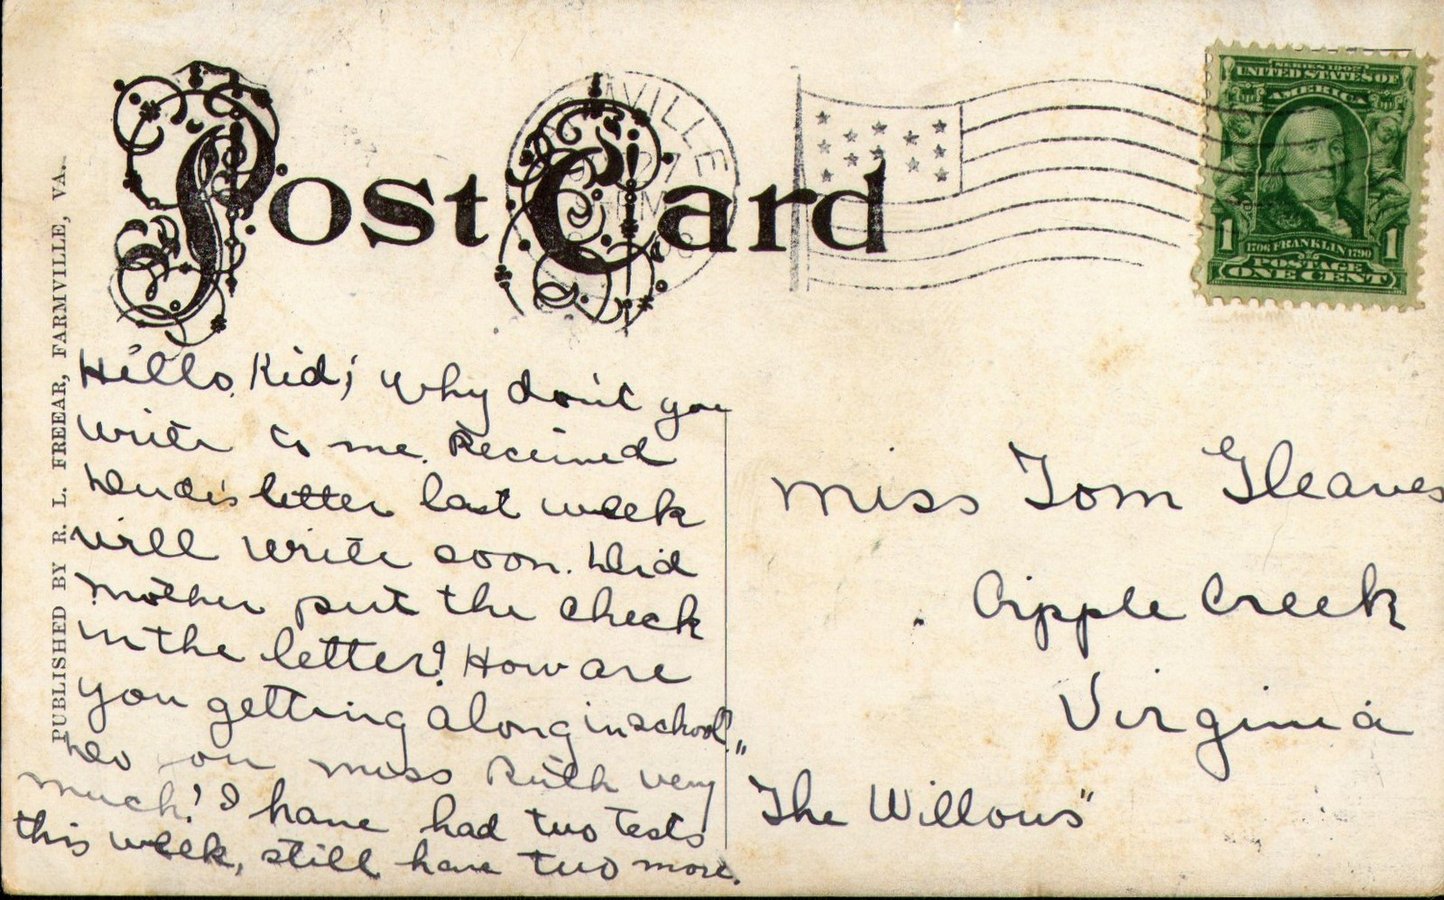 Post Card
MVILLE
SERIES 1902
UNITED STATES OF
AMERICA
1706 FRANKLIN 1790
POSTAGE
1 1
ONE CENT
PUBLISHED BY R. L. FREEAR, FARMVILLE, VA.
Hello Kid; Why don't you
write to me. Received
letter last week
will write soon. Did
mother put the check
in the letter? How are
you getting along in school?
Do you miss Ruth very
much? I have had two tests
this week, still have two more.
Miss Tom Gleaves
Cripple Creek
Virginia
"The Willows"